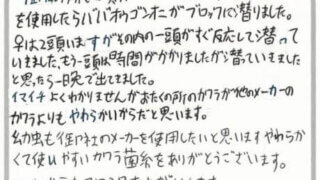 を使用したらババオウゴンオニがブロックに潜りました。
♀は2頭いますがその内の一頭がすぐ反応して潜って
いきました、もう一頭は時間がかかりましたがが潜っていきました
と思ったら一晩で出てました。
イマイチよくわかりませんがおたくの所のカワラが他のメーカーの
カワラよりもやわらかいからだと思います。
幼虫も御社のメーカーを使用したいと思いますやわらか
くて使いやすいカワラ菌糸をありがとうございます。